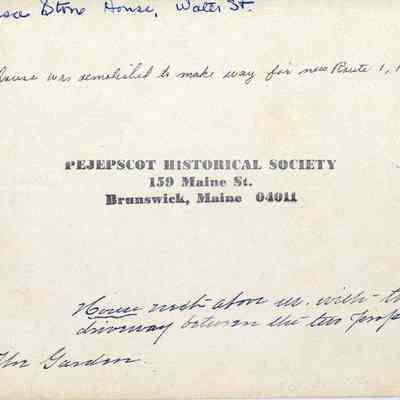 Stone House, Water St.
House was demolished to make way for new Route 1, 1
PEJEPSCOT HISTORICAL SOCIETY
159 Maine St.
Brunswick, Maine 04011
House next above us. with
driveway between the two
The Garden.